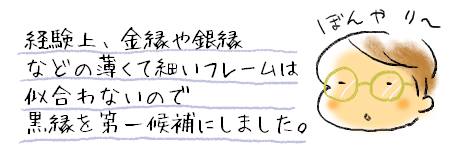 ぼんやり〜
経験上、金縁や銀縁
などの薄くて細いフレームは
似合わないので
黒縁を第一候補にしました。